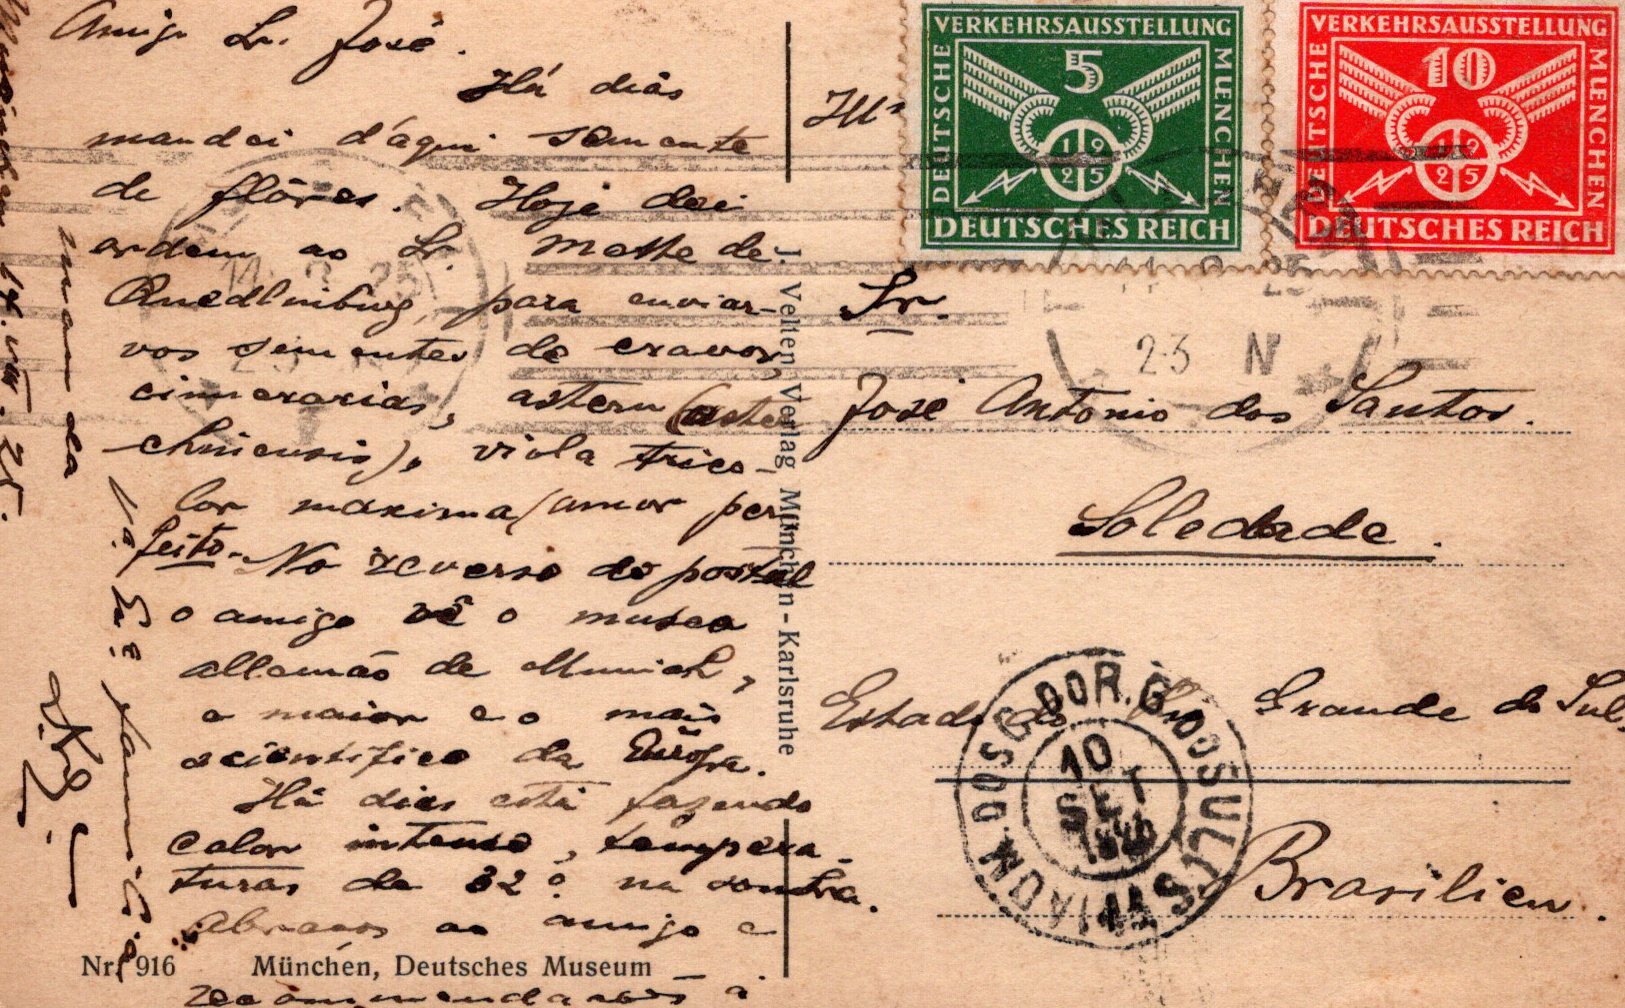 Amigo Sr. José.
Há dias
mandei d'aqui semente
de flôres. Hoje dei
ordem ao Sr. Mette de
Quedlinburg, para enviar-
vos sementes de cravos,
cinerarias, astern (aster
chinensis), viola trico-
lor maxima (amor per
feito. No reverso do postal
o amigo vê o museo
allemão de Munich,
o maior e o mais
scientifico da Europa.
Há dias está fazendo
calor intenso, tempera-
turas de 32° na sombra.
Abraços ao amigo e
recommendações á
Nr. 916 München, Deutsches Museum
J. Velten, Verlag München-Karlsruhe
VERKEHRSAUSSTELLUNG
DEUTSCHE
MUENCHEN
5
1925
DEUTSCHES REICH
VERKEHRSAUSSTELLUNG
DEUTSCHE
MUENCHEN
10
1925
DEUTSCHES REICH
2-3 N
Sr.
José Antonio dos Santos.
Soledade.
Estado do Rio Grande do Sul,
Brasilien.
10
SET